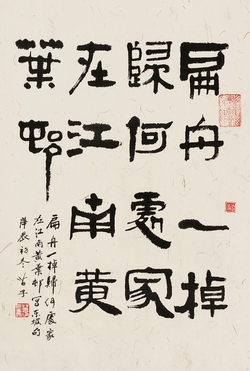 扁舟一棹
歸何處家
在江南黃
葉邨
扁舟一棹歸何處家
在江南黃葉邨寫東坡句
庚辰初冬